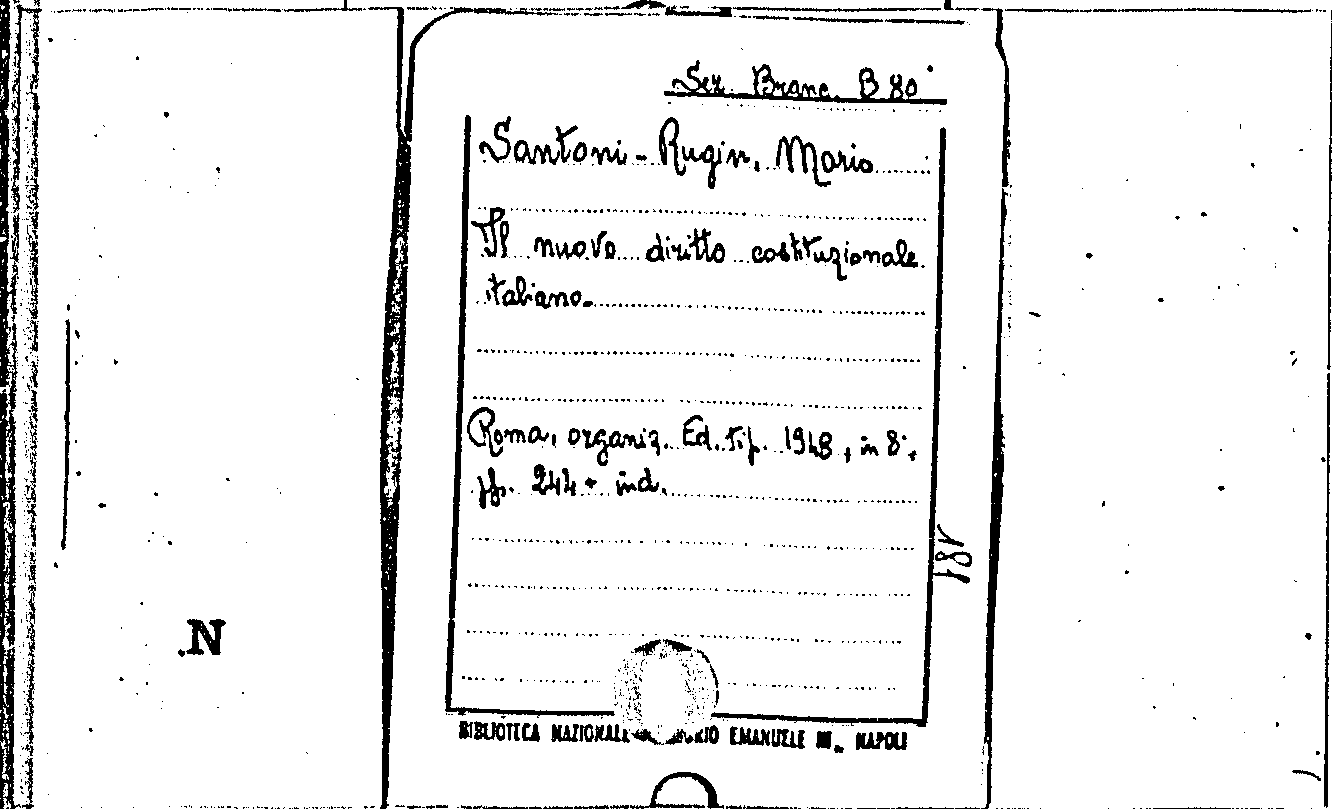 Sez. Branc. B 80
Santoni-Rugin, Mario
Il nuovo diritto costituzionale
italiano.
Roma, organiz. Ed. tip. 1948, in 8°,
pp. 244 + ind.
.N
BIBLIOTECA NAZIONALE EMANUELE III - NAPOLI